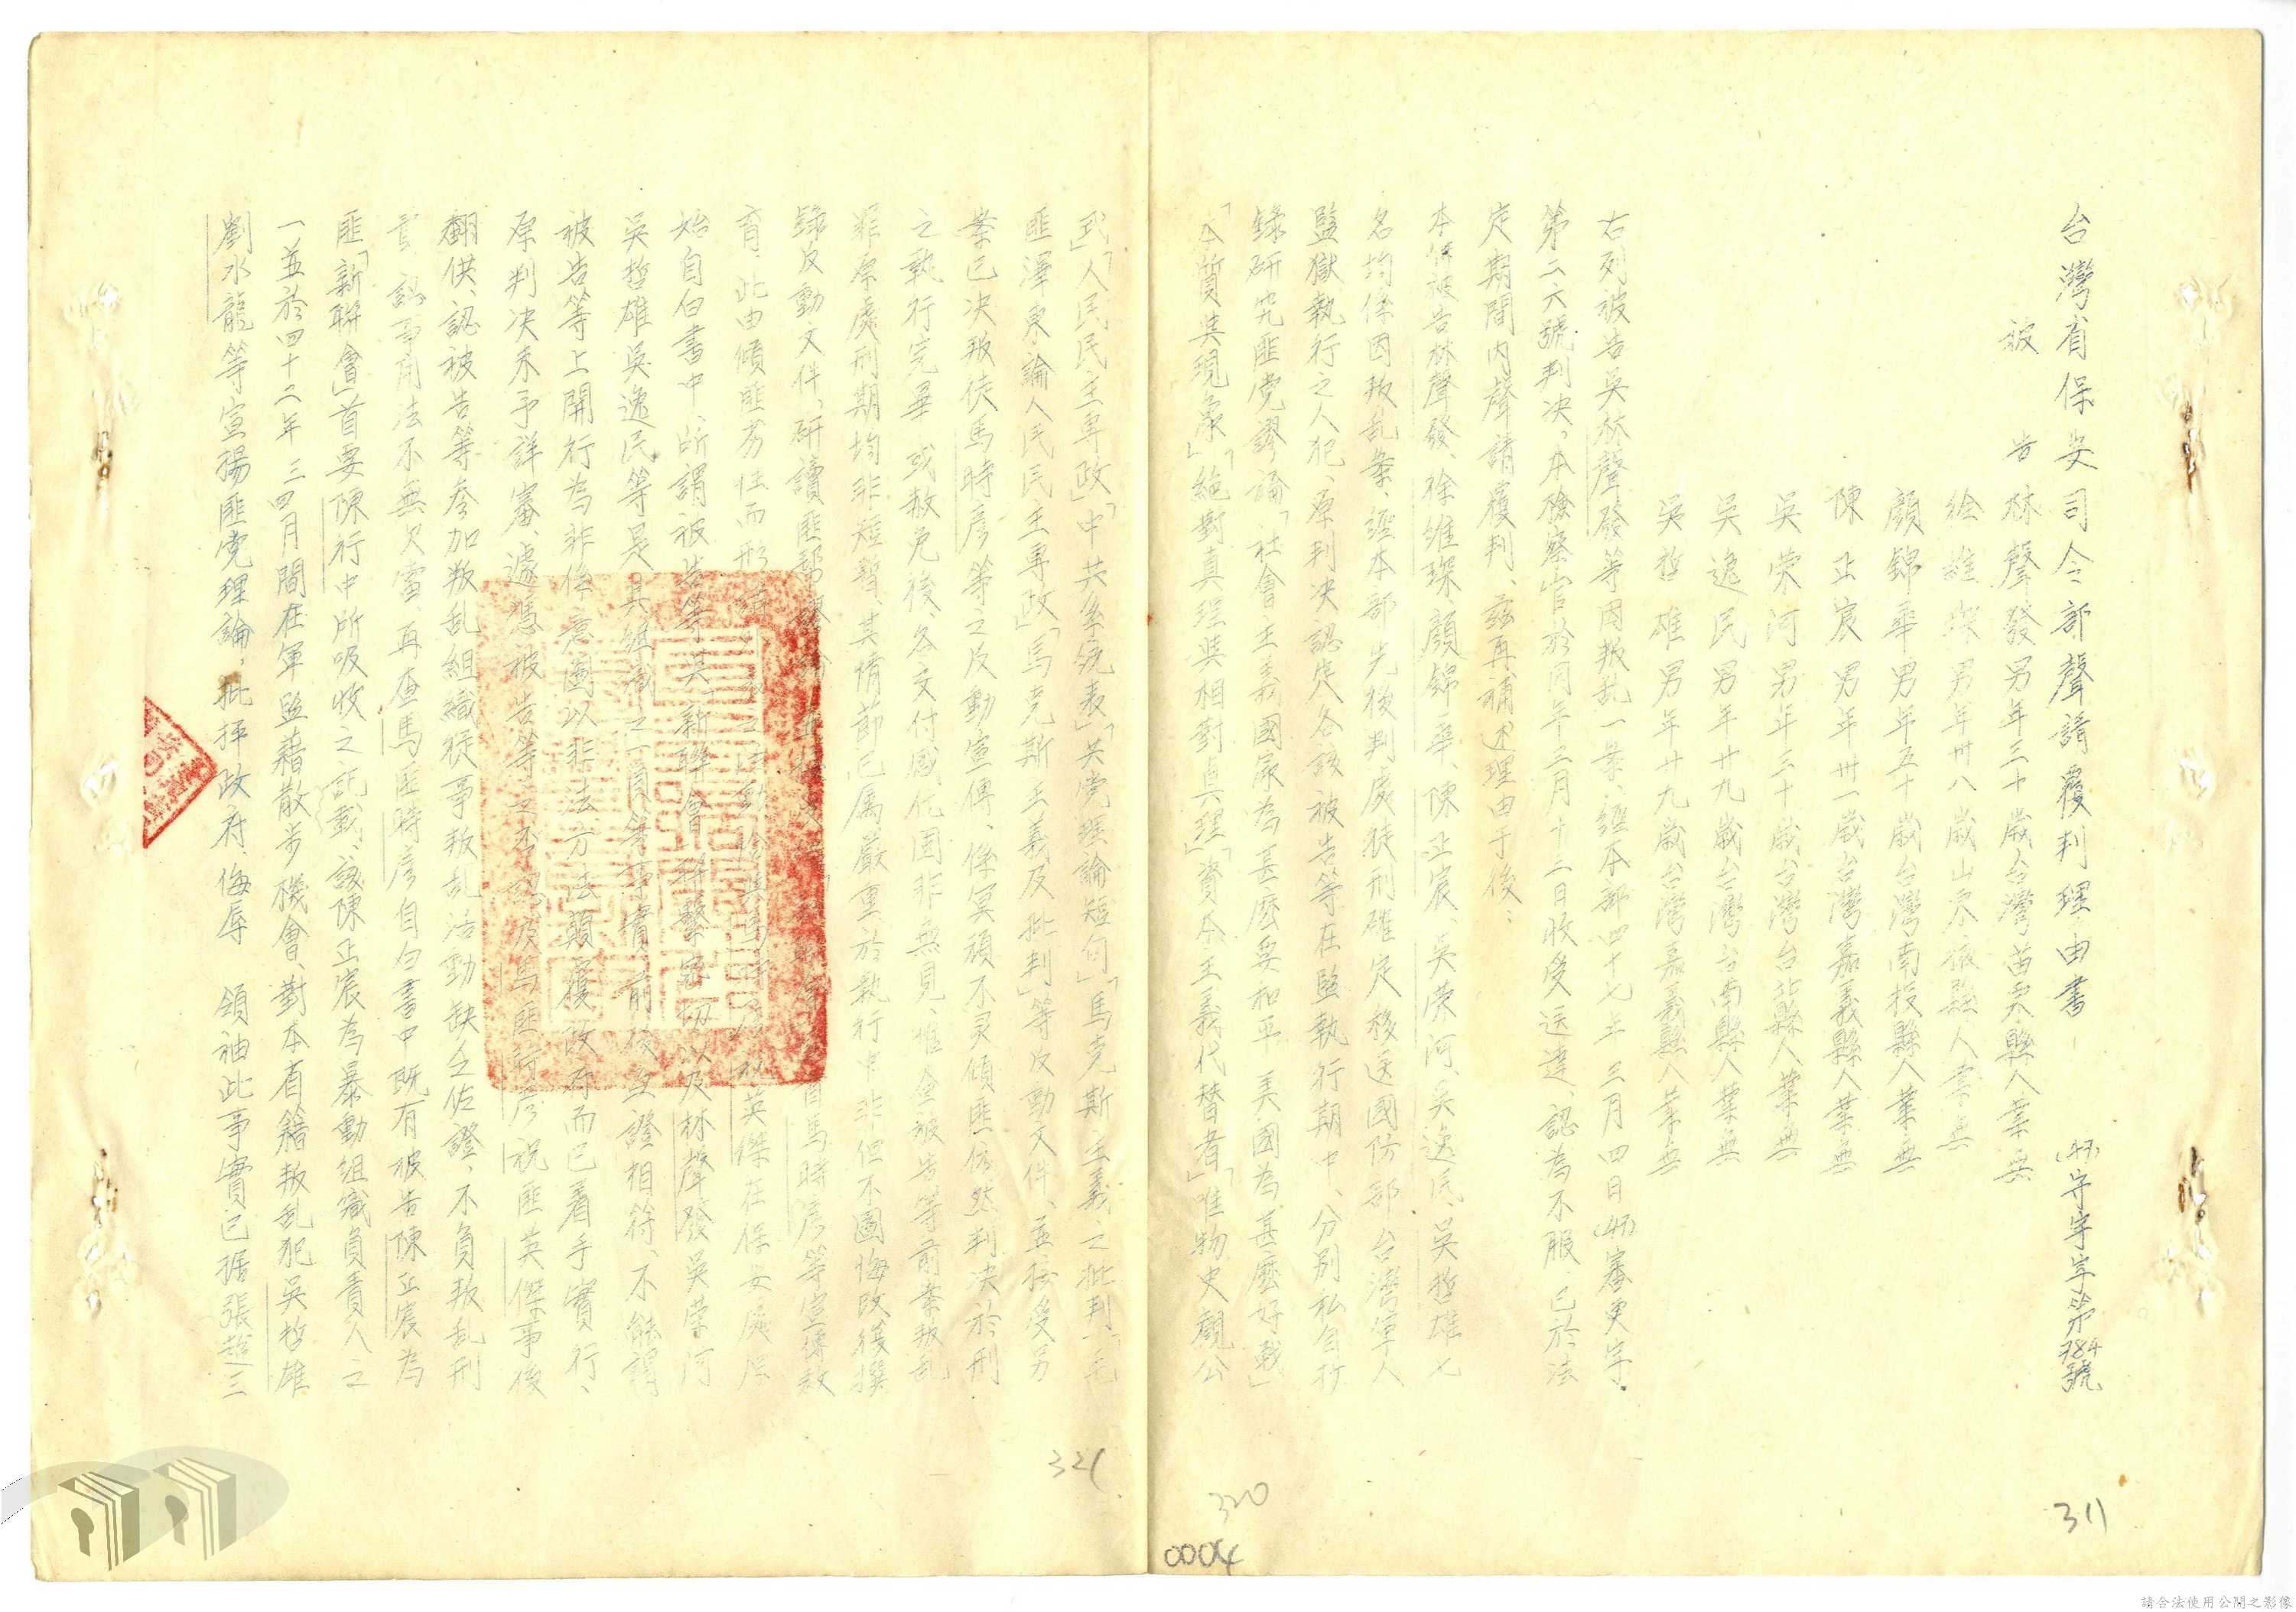 台灣省保安司令部聲請覆判理由書 (47)守字第784號
被告 林聲發 男年三十歲台灣苗栗縣人業無
徐維琛 男年卅八歲山東縣人業無
顏錦華 男年五十歲台灣南投縣人業無
陳正宸 男年卅一歲台灣嘉義縣人業無
吳榮河 男年三十歲台灣台北縣人業無
吳逸民 男年廿九歲台灣台南縣人業無
吳哲雄 男年廿九歲台灣嘉義縣人業無
右列被告吳林聲發等因叛乱一案、經本部四十七年三月四日(47)審更字
第二六號判决，本檢察官於同年三月十三日收受送達、認為不服、已於法
定期間內聲請覆判、茲再補述理由于後：
本件被告林聲發、徐維琛、顏錦華、陳正宸、吳榮河、吳逸民、吳哲雄七
名均係因叛乱案、經本部先後判處徒刑確定移送國防部台灣軍人
監獄執行之人犯、原判决認定各該被告等在監執行期中、分別私自抄
錄研究匪党謬論「社會主義國家為甚麼要和平、美國為甚麼好戰」
「本質與現象」「絕對真理與相對真理」「資本主義代替者」「唯物史觀公
式」「人民民主專政」「中共系統表」「共党理論短句」「馬克斯主義之批判」「毛
匪澤東論人民民主專政」「馬克斯主義及批判」等反動文件、並接受另
案已决叛徒馬時彥等之反動宣傳、係冥頑不灵傾匪仍然判决於刑
之執行完畢或赦免後、各交付感化固非無見、惟查被告等前案叛乱
罪原處刑期均非短暫、其情節已属嚴重、於執行中非但不圖悔改復撰
錄反動文件、研讀匪 馬時彥等宣傳教
育、此由傾匪 而形 英傑在保安處原
始自白書中、所謂被告等其「新聯會」 以及林聲發吳榮河
吳哲雄吳逸民等是其組織之一員等事實前後 證相符、不能謂
被告等上開行為非係意圖以非法方法顛覆政府而已着手實行、
原判决未予詳審、遽憑被告等之否認及馬匪時彥祝匪英傑事後
翻供、認被告等參加叛乱組織從事叛乱活動缺乏佐證、不負叛乱刑
責、認事用法不無欠當、再查馬匪時彥自白書中既有被告陳正宸為
匪「新聯會」首要陳行中所吸收之記載、該陳正宸為暴動組織負責人之
一並於四十二年三四月間在軍監藉散步機會、對本省籍叛乱犯吳哲雄
劉水龍等宣揚匪党理論，批評政府、侮辱 領袖此事實已据張 三
311
320
321
0004
請合法使用公開之影像